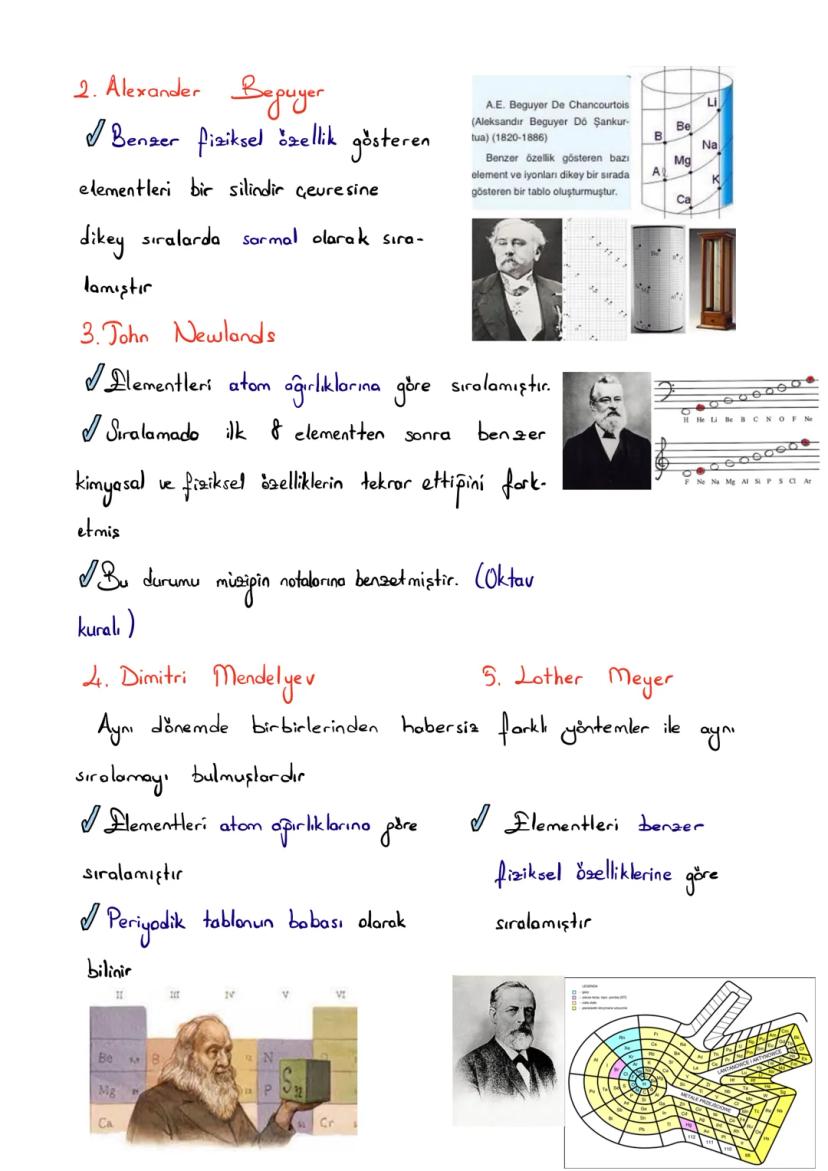 2. Alexander Beguyer
Benzer fiziksel özellik gösteren
elementleri bir silindir çevresine
dikey sıralarda sarmal olarak sıra-
lamıştır
A.E. Beguyer De Chancourtois
(Aleksandır Beguyer Dö Şankur-
tua) (1820-1886)
Benzer özellik gösteren bazı
element ve iyonları dikey bir sırada
gösteren bir tablo oluşturmuştur.
Li
Be
B
Na
Mg
Al
K
Ca
3. John Newlands
Elementleri atom ağırlıklarına göre sıralamıştır.
Sıralamada ilk 8 elementten sonra benzer
kimyasal ve fiziksel özelliklerin tekrar ettiğini fark-
etmiş
Bu durumu müziğin notalarına benzetmiştir. (Oktav
kuralı)
H He Li Be B C N O F Ne
F Ne Na Mg Al Si P S Cl Ar
4. Dimitri Mendelyev
5. Lother Meyer
Aynı dönemde birbirlerinden habersiz farklı yöntemler ile aynı
sıralamayı bulmuşlardır
Elementleri atom ağırlıklarına göre
sıralamıştır
Periyodik tablonun babası olarak
bilinir
Elementleri benzer
fiziksel özelliklerine göre
sıralamıştır
II III IV V VI
Be B N
Mg P S
Ca Cr
LEGENDA
LANTANOWCE I AKTYNOWCE
METALE PRZEJŚCIOWE
Hg
112 111 110